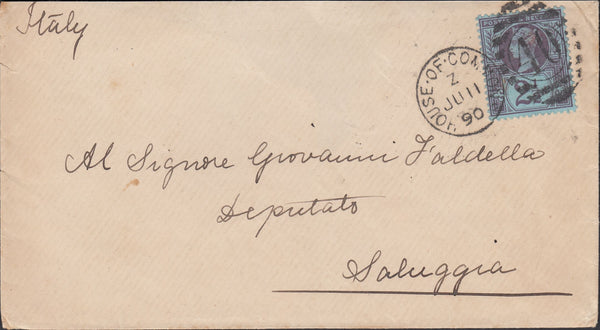 Italy
HOUSE·OF·COM
Z
JU 11
90
Al Signore Giovanni Faldella
Deputato
Saluggia